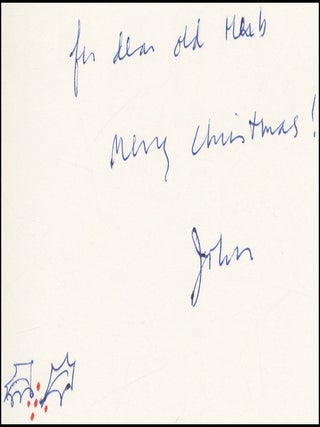 for dear old Herb
Merry Christmas!
John